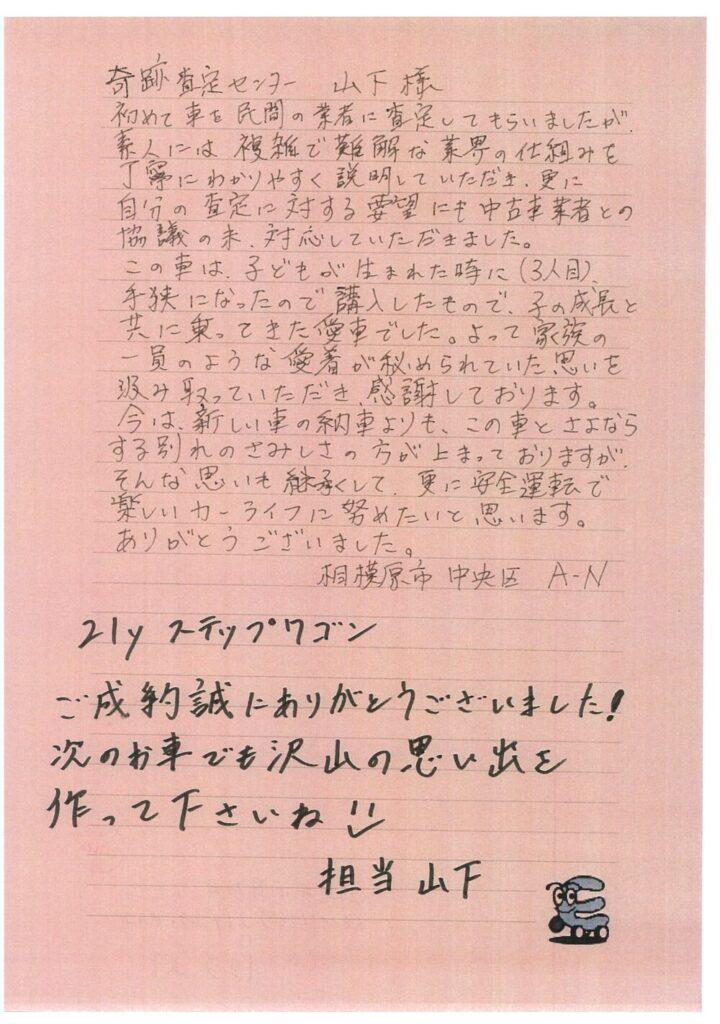 奇跡査定センター 山下様
初めて車を民間の業者に査定してもらいましたが、
素人には複雑で難解な業界の仕組みを
丁寧にわかりやすく説明していただき、更に
自分の査定に対する要望にも中古車業者との
協議の末、対応していただきました。
この車は、子どもが生まれた時に(3人目)、
手狭になったので購入したもので、子の成長と
共に乗ってきた愛車でした。よって家族の
一員のような愛着が秘められていた思いを
汲み取っていただき、感謝しております。
今は、新しい車の納車よりも、この車とさよなら
する別れのさみしさの方が上まっておりますが、
そんな思いも継承くして、更に安全運転で
楽しいカーライフに努めたいと思います。
ありがとうございました。
相模原市 中央区 A-N
21y ステップワゴン
ご成約誠にありがとうございました!
次のお車でも沢山の思い出を
作って下さいね!!
担当 山下